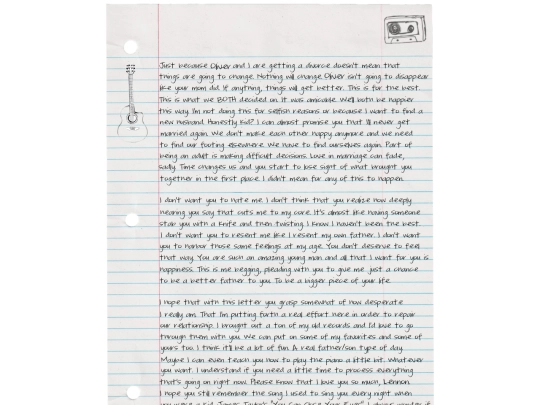 Just because Oliver and I are getting a divorce doesn't mean that
things are going to change. Nothing will change. Oliver isn't going to disappear
like your mom did. If anything, things will get better. This is for the best.
This is what we BOTH decided on. It was amicable. We'll both be happier
this way. I'm not doing this for selfish reasons or because I want to find a
new husband. Honestly kid? I can almost promise you that I'll never get
married again. We don't make each other happy anymore and we need
to find our footing elsewhere. We have to find ourselves again. Part of
being an adult is making difficult decisions. Love in marriage can fade,
sadly. Time changes us and you start to lose sight of what brought you
together in the first place. I didn't mean for any of this to happen.
I don't want you to hate me. I don't think that you realize how deeply
hearing you say that cuts me to my core. It's almost like having someone
stab you with a knife and then twisting. I know I haven't been the best.
I don't want you to resent me like I resent my own father. I don't want
you to harbor those same feelings at my age. You don't deserve to feel
that way. You are such an amazing young man and all that I want for you is
happiness. This is me begging, pleading with you to give me just a chance
to be a better father to you. To be a bigger piece of your life.
I hope that with this letter you grasp somewhat of how desperate
I really am. That I'm putting forth a real effort here in order to repair
our relationship. I brought out a ton of my old records and I'd love to go
through them with you. We can put on some of my favorites and some of
yours too. I think it'll be a lot of fun. A real father/son type of day.
Maybe I can even teach you how to play the piano a little bit. Whatever
you want. I understand if you need a little time to process everything
that's going on right now. Please know that I love you so much, Lennon.
I hope you still remember the song I used to sing you every night when